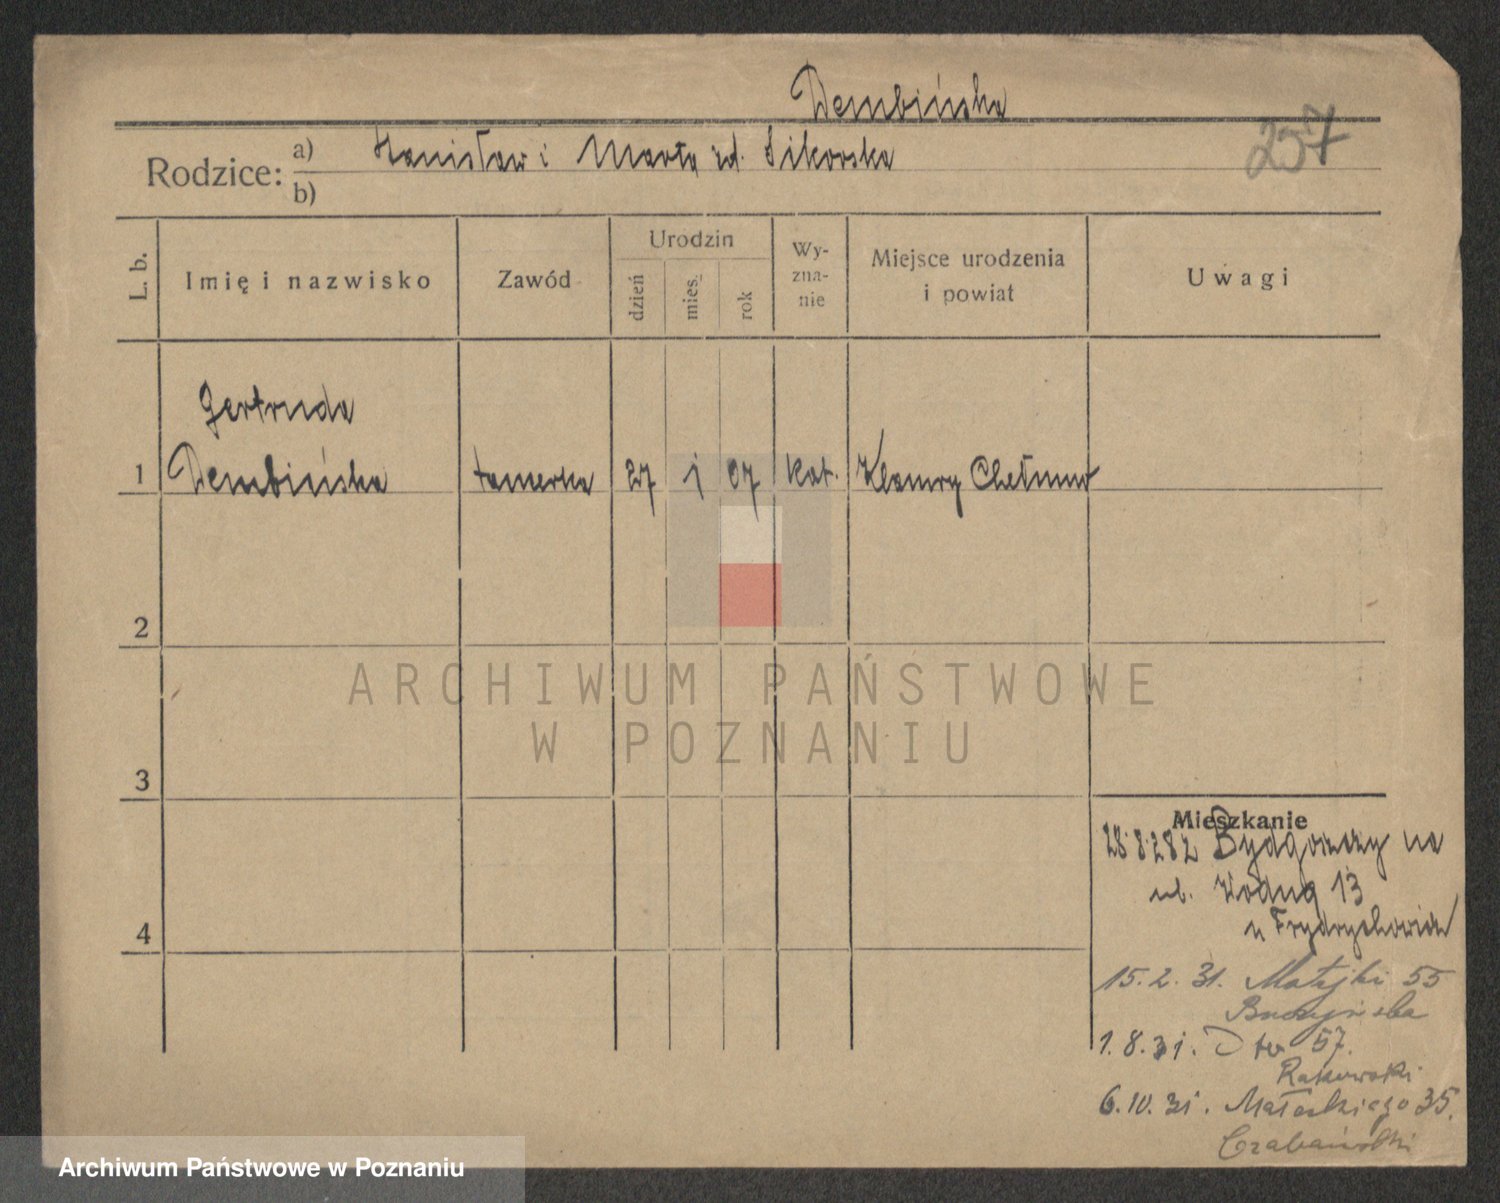 Dembińska
257
Rodzice: a) Stanisław i Marta zd. Sikorska
b)
L. b. Imię i nazwisko Zawód Urodzin dzień mies. rok Wy-zna-nie Miejsce urodzenia i powiat Uwagi
Gertruda
1 Dembińska 27 1 07 kat. Klamry Chełmno
2
ARCHIWUM PAŃSTWOWE
W POZNANIU
3
Mieszkanie
28.8.28 z Bydgoszczy na
ul. Wodną 13
u Frydrychowicz
4
15.2.31. Matejki 55
1.8.31. Dto 57.
Rakowski
6.10.31. Małeckiego 35.
Czabański
Archiwum Państwowe w Poznaniu